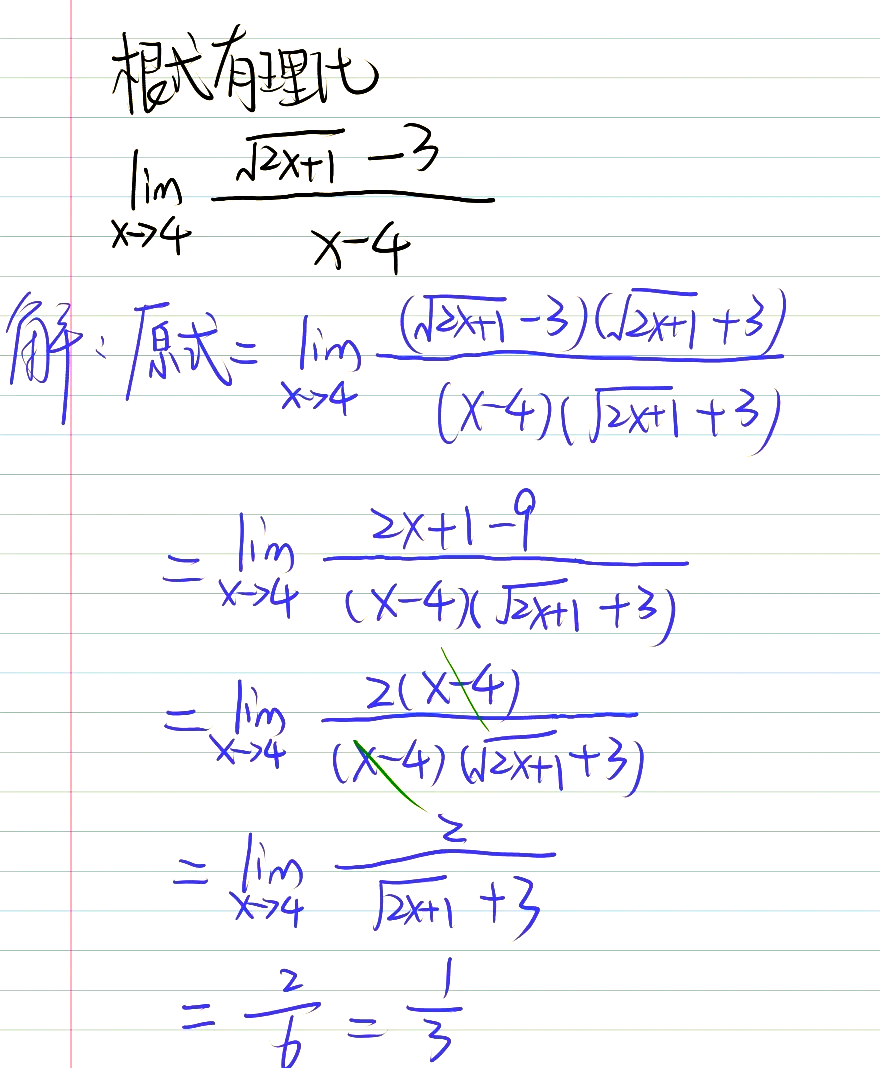 根式有理化
lim x→4 (√(2x+1) -3)/(x-4)
解：原式= lim x→4 ((√(2x+1) -3)(√(2x+1) +3))/((x-4)(√(2x+1) +3))
= lim x→4 (2x+1-9)/((x-4)(√(2x+1) +3))
= lim x→4 (2(x-4))/((x-4)(√(2x+1) +3))
= lim x→4 2/(√(2x+1) +3)
= 2/6 = 1/3